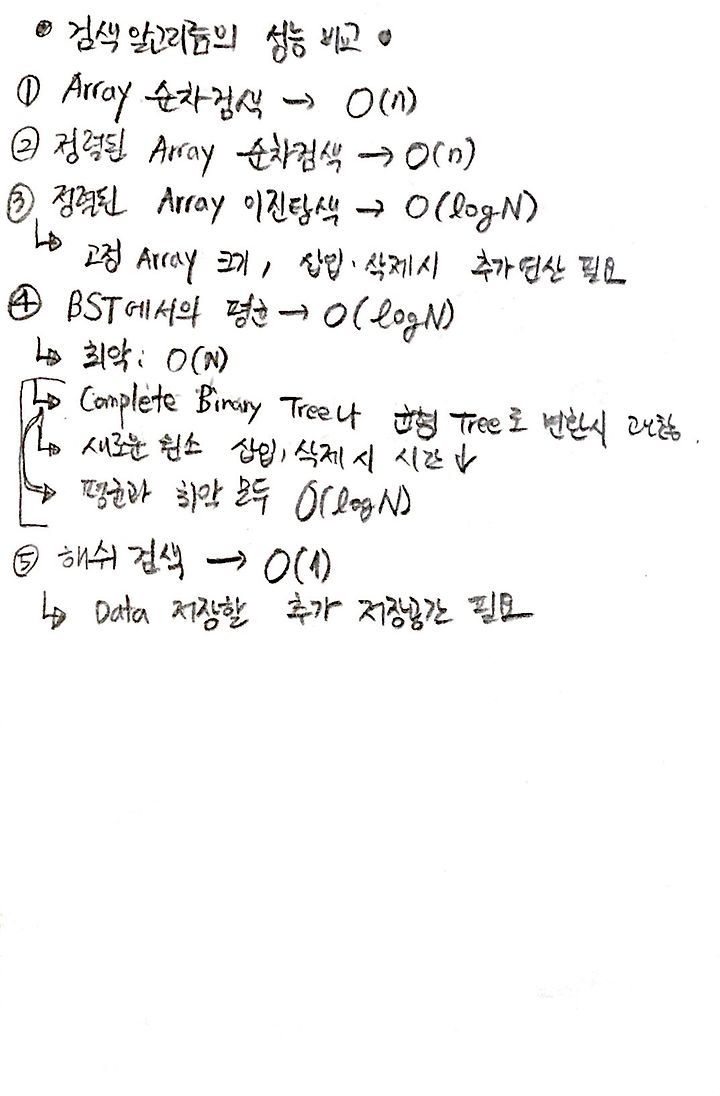 • 검색 알고리즘의 성능 비교 •
① Array 순차검색 → O(n)
② 정렬된 Array 순차검색 → O(n)
③ 정렬된 Array 이진탐색 → O(logN)
↳ 고정 Array 크기, 삽입·삭제시 추가연산 필요
④ BST에서의 평균 → O(logN)
↳ 최악: O(N)
↳ Complete Binary Tree나 균형 Tree로 변환시
↳ 새로운 원소 삽입·삭제 시 시간↓
→ 평균과 최악 모두 O(logN)
⑤ 해쉬 검색 → O(1)
↳ Data 저장할 추가 저장공간 필요